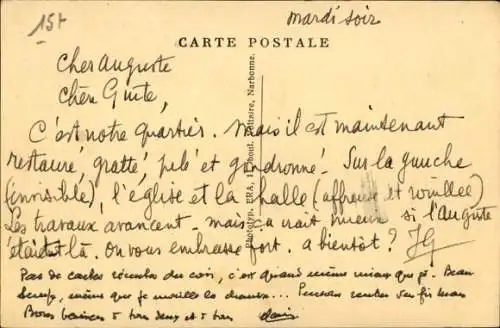 15f
mardi soir
CARTE POSTALE
Cher Auguste
Chère Guite,
C'est notre quartier. Mais il est maintenant
restauré, gratté, pelé et goudronné. Sur la gauche
(invisible), l'église et la halle (affreuse et rouillée)
Les travaux avancent. mais ça irait mieux si l'Auguste
était là. On vous embrasse fort. a bientôt ? JG
Pas de cartes récentes du coin, c'est quand même mieux que ça. Beau
temps, même que je mouille la chemise... Pensons rentrer
Bons baisers à tous deux et à tous
Phototyp. ERA, 11, boul. Voltaire, Narbonne.